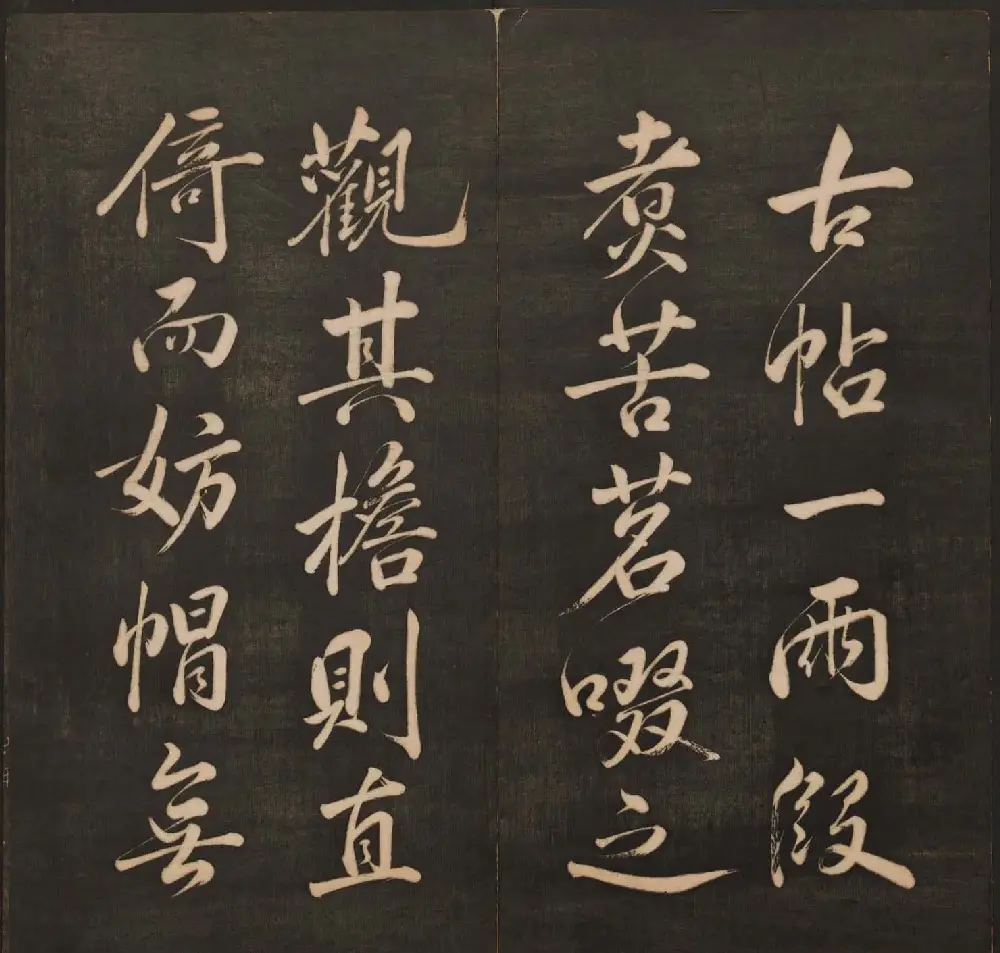 古帖一兩段
煮苦茗啜之
觀其檐則直
倚而妨帽無